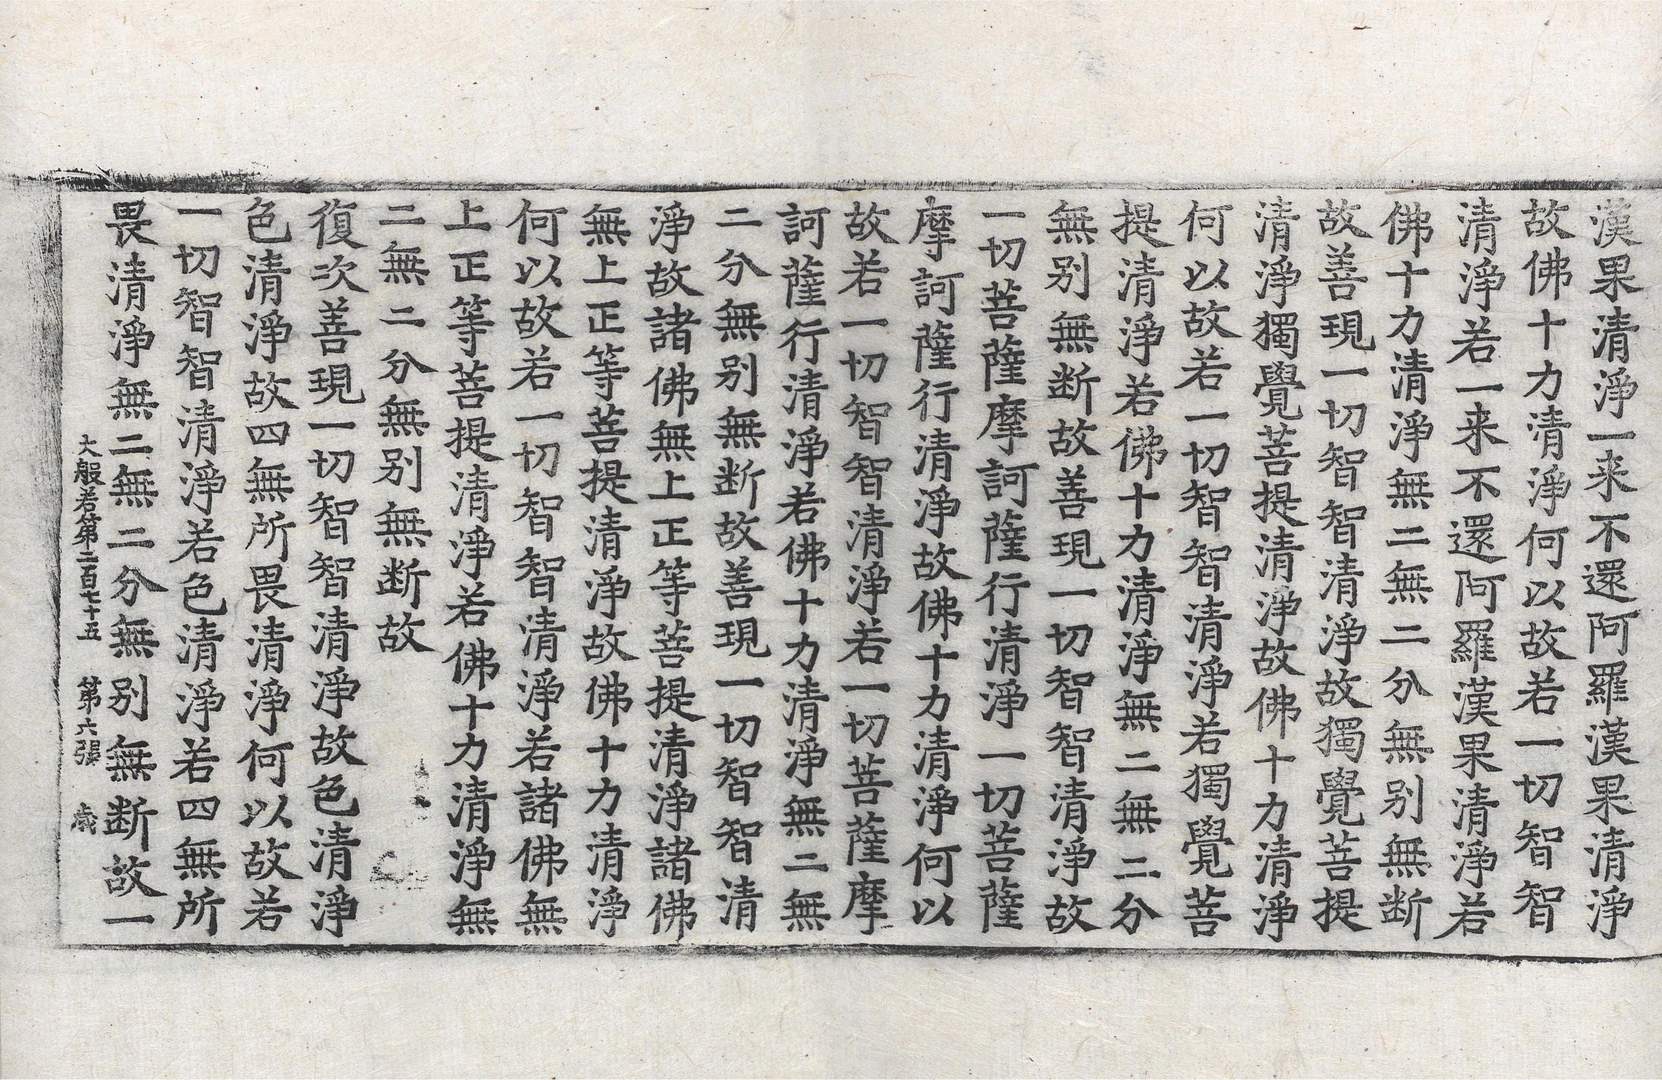 漢果清淨一来不還阿羅漢果清淨
故佛十力清淨何以故若一切智智
清淨若一来不還阿羅漢果清淨若
佛十力清淨無二無二分無别無断
故善現一切智智清淨故獨覺菩提
清淨獨覺菩提清淨故佛十力清淨
何以故若一切智智清淨若獨覺菩
提清淨若佛十力清淨無二無二分
無别無断故善現一切智智清淨故
一切菩薩摩訶薩行清淨一切菩薩
摩訶薩行清淨故佛十力清淨何以
故若一切智智清淨若一切菩薩摩
訶薩行清淨若佛十力清淨無二無
二分無别無断故善現一切智智清
淨故諸佛無上正等菩提清淨諸佛
無上正等菩提清淨故佛十力清淨
何以故若一切智智清淨若諸佛無
上正等菩提清淨若佛十力清淨無
二無二分無别無断故
復次善現一切智智清淨故色清淨
色清淨故四無所畏清淨何以故若
一切智智清淨若色清淨若四無所
畏清淨無二無二分無别無断故一
大般若第二百七十五 第六張 歲